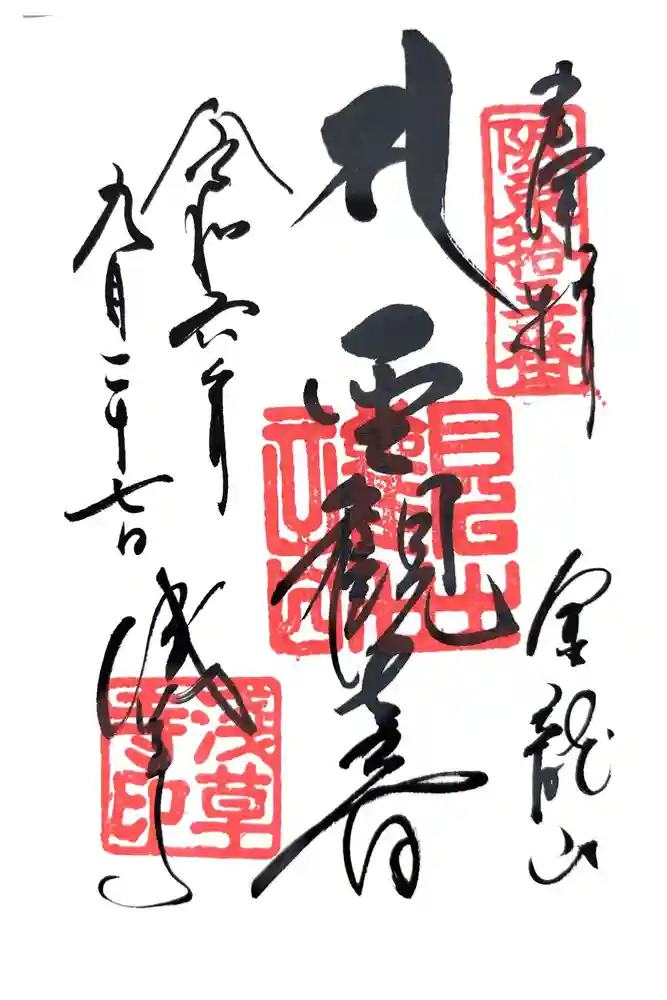 奉拝
阪東拾三番
金龍山
聖観世音
令和六年
九月二十七日
浅草寺
淺草寺印